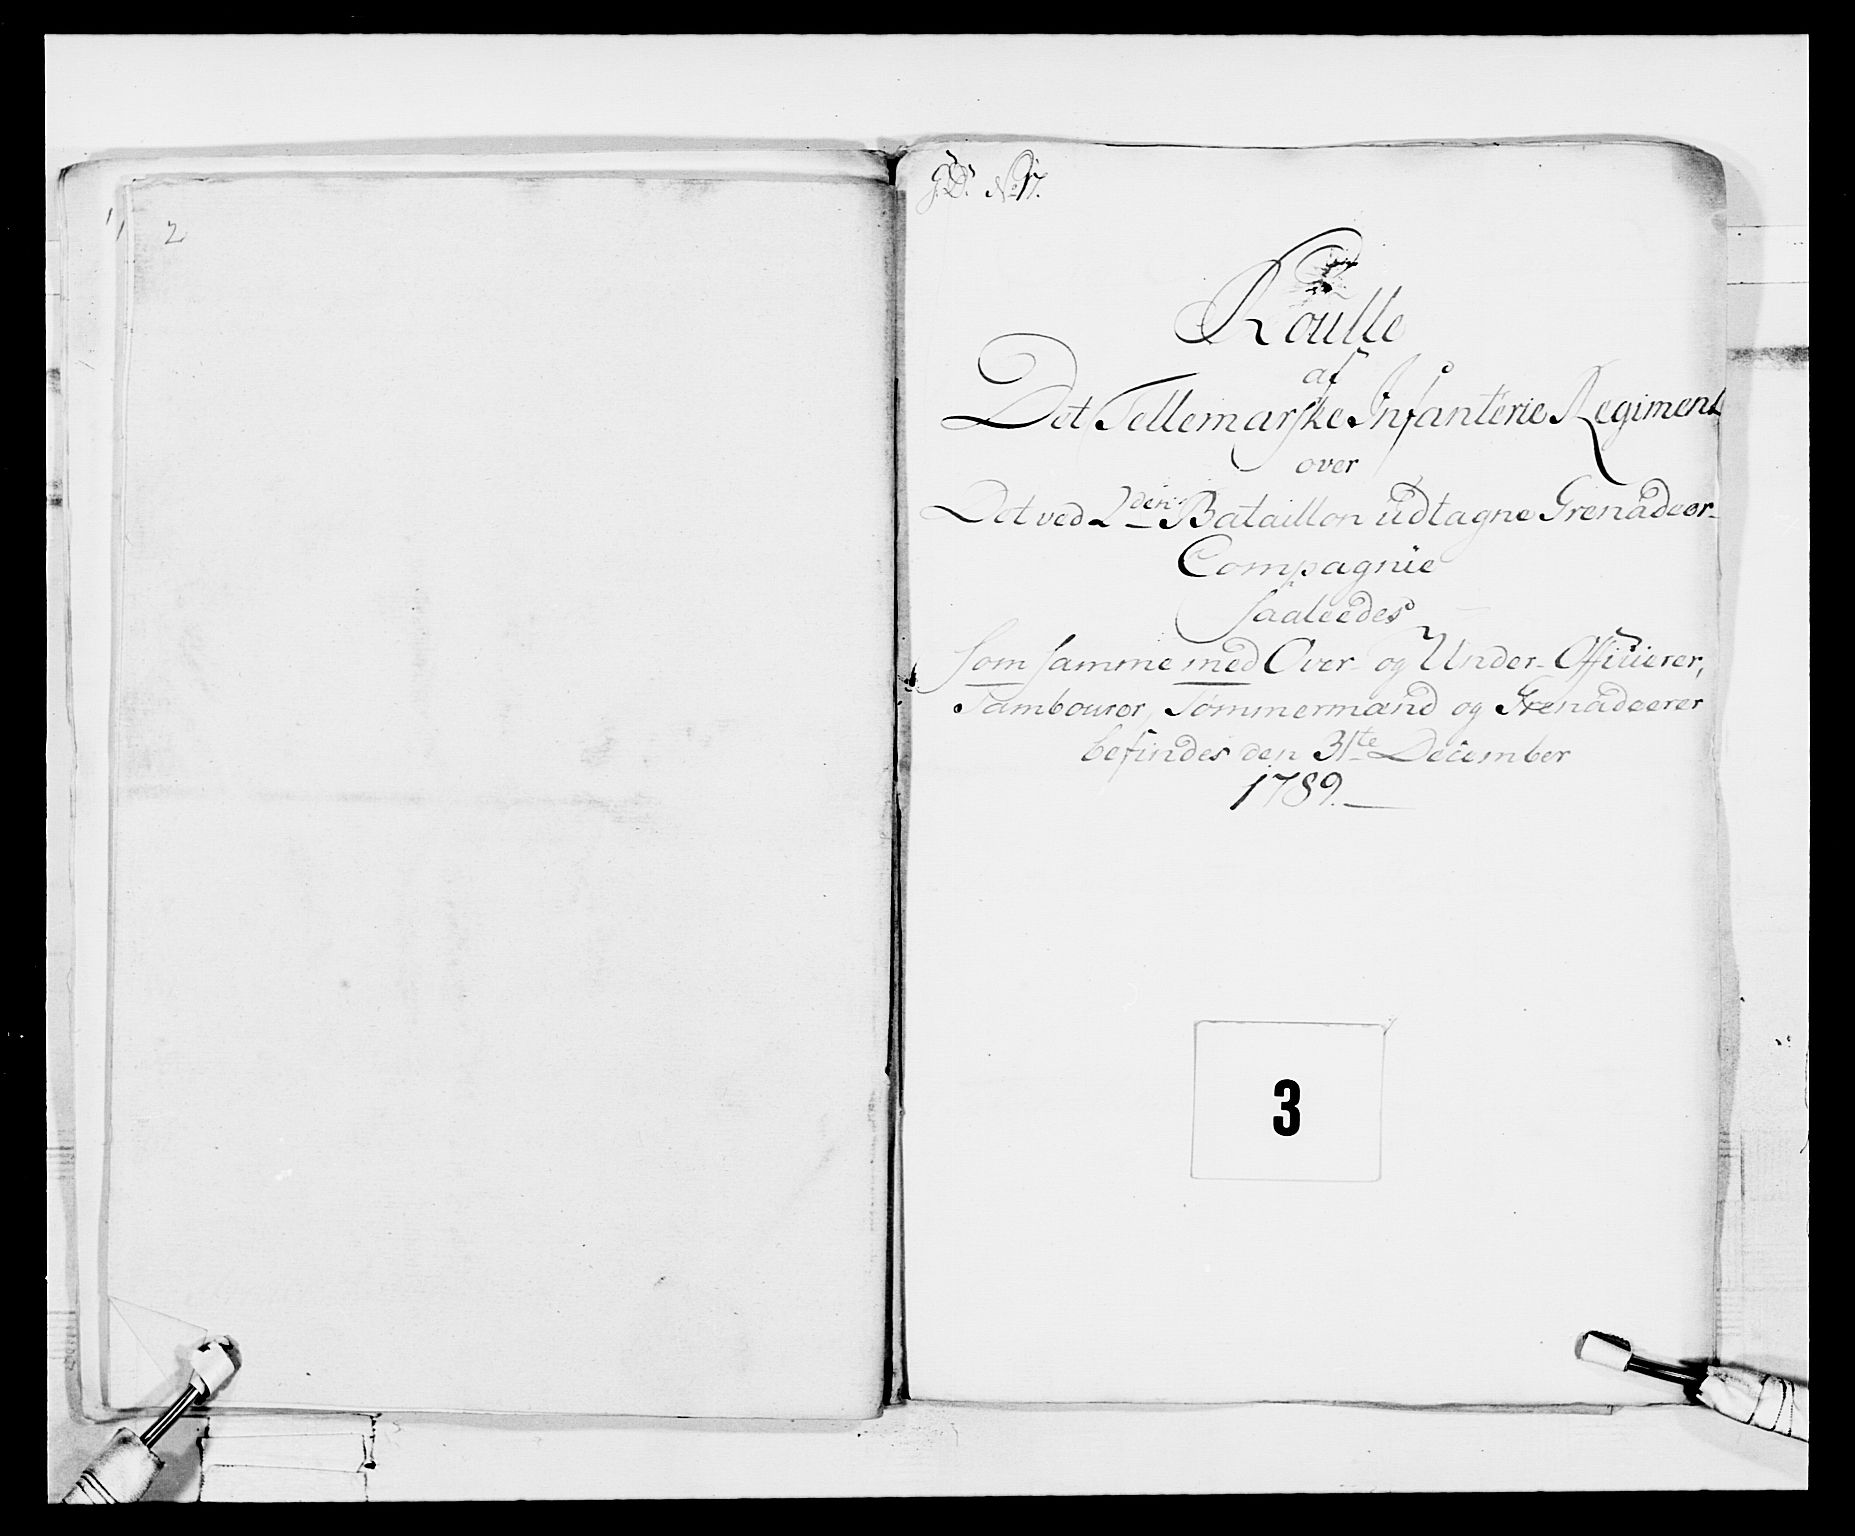 2
J. D. No 17.
Roulle
af
Det Tellemarske Infanterie Regiment
over
Det ved 2den Bataillon udtagne Grenadeer-
Compagnie
saaleedes
som samme med Over- og Under-Officierer,
Tambourer, Tømmermænd og Grenadeerer
befindes den 31te December
1789.
3